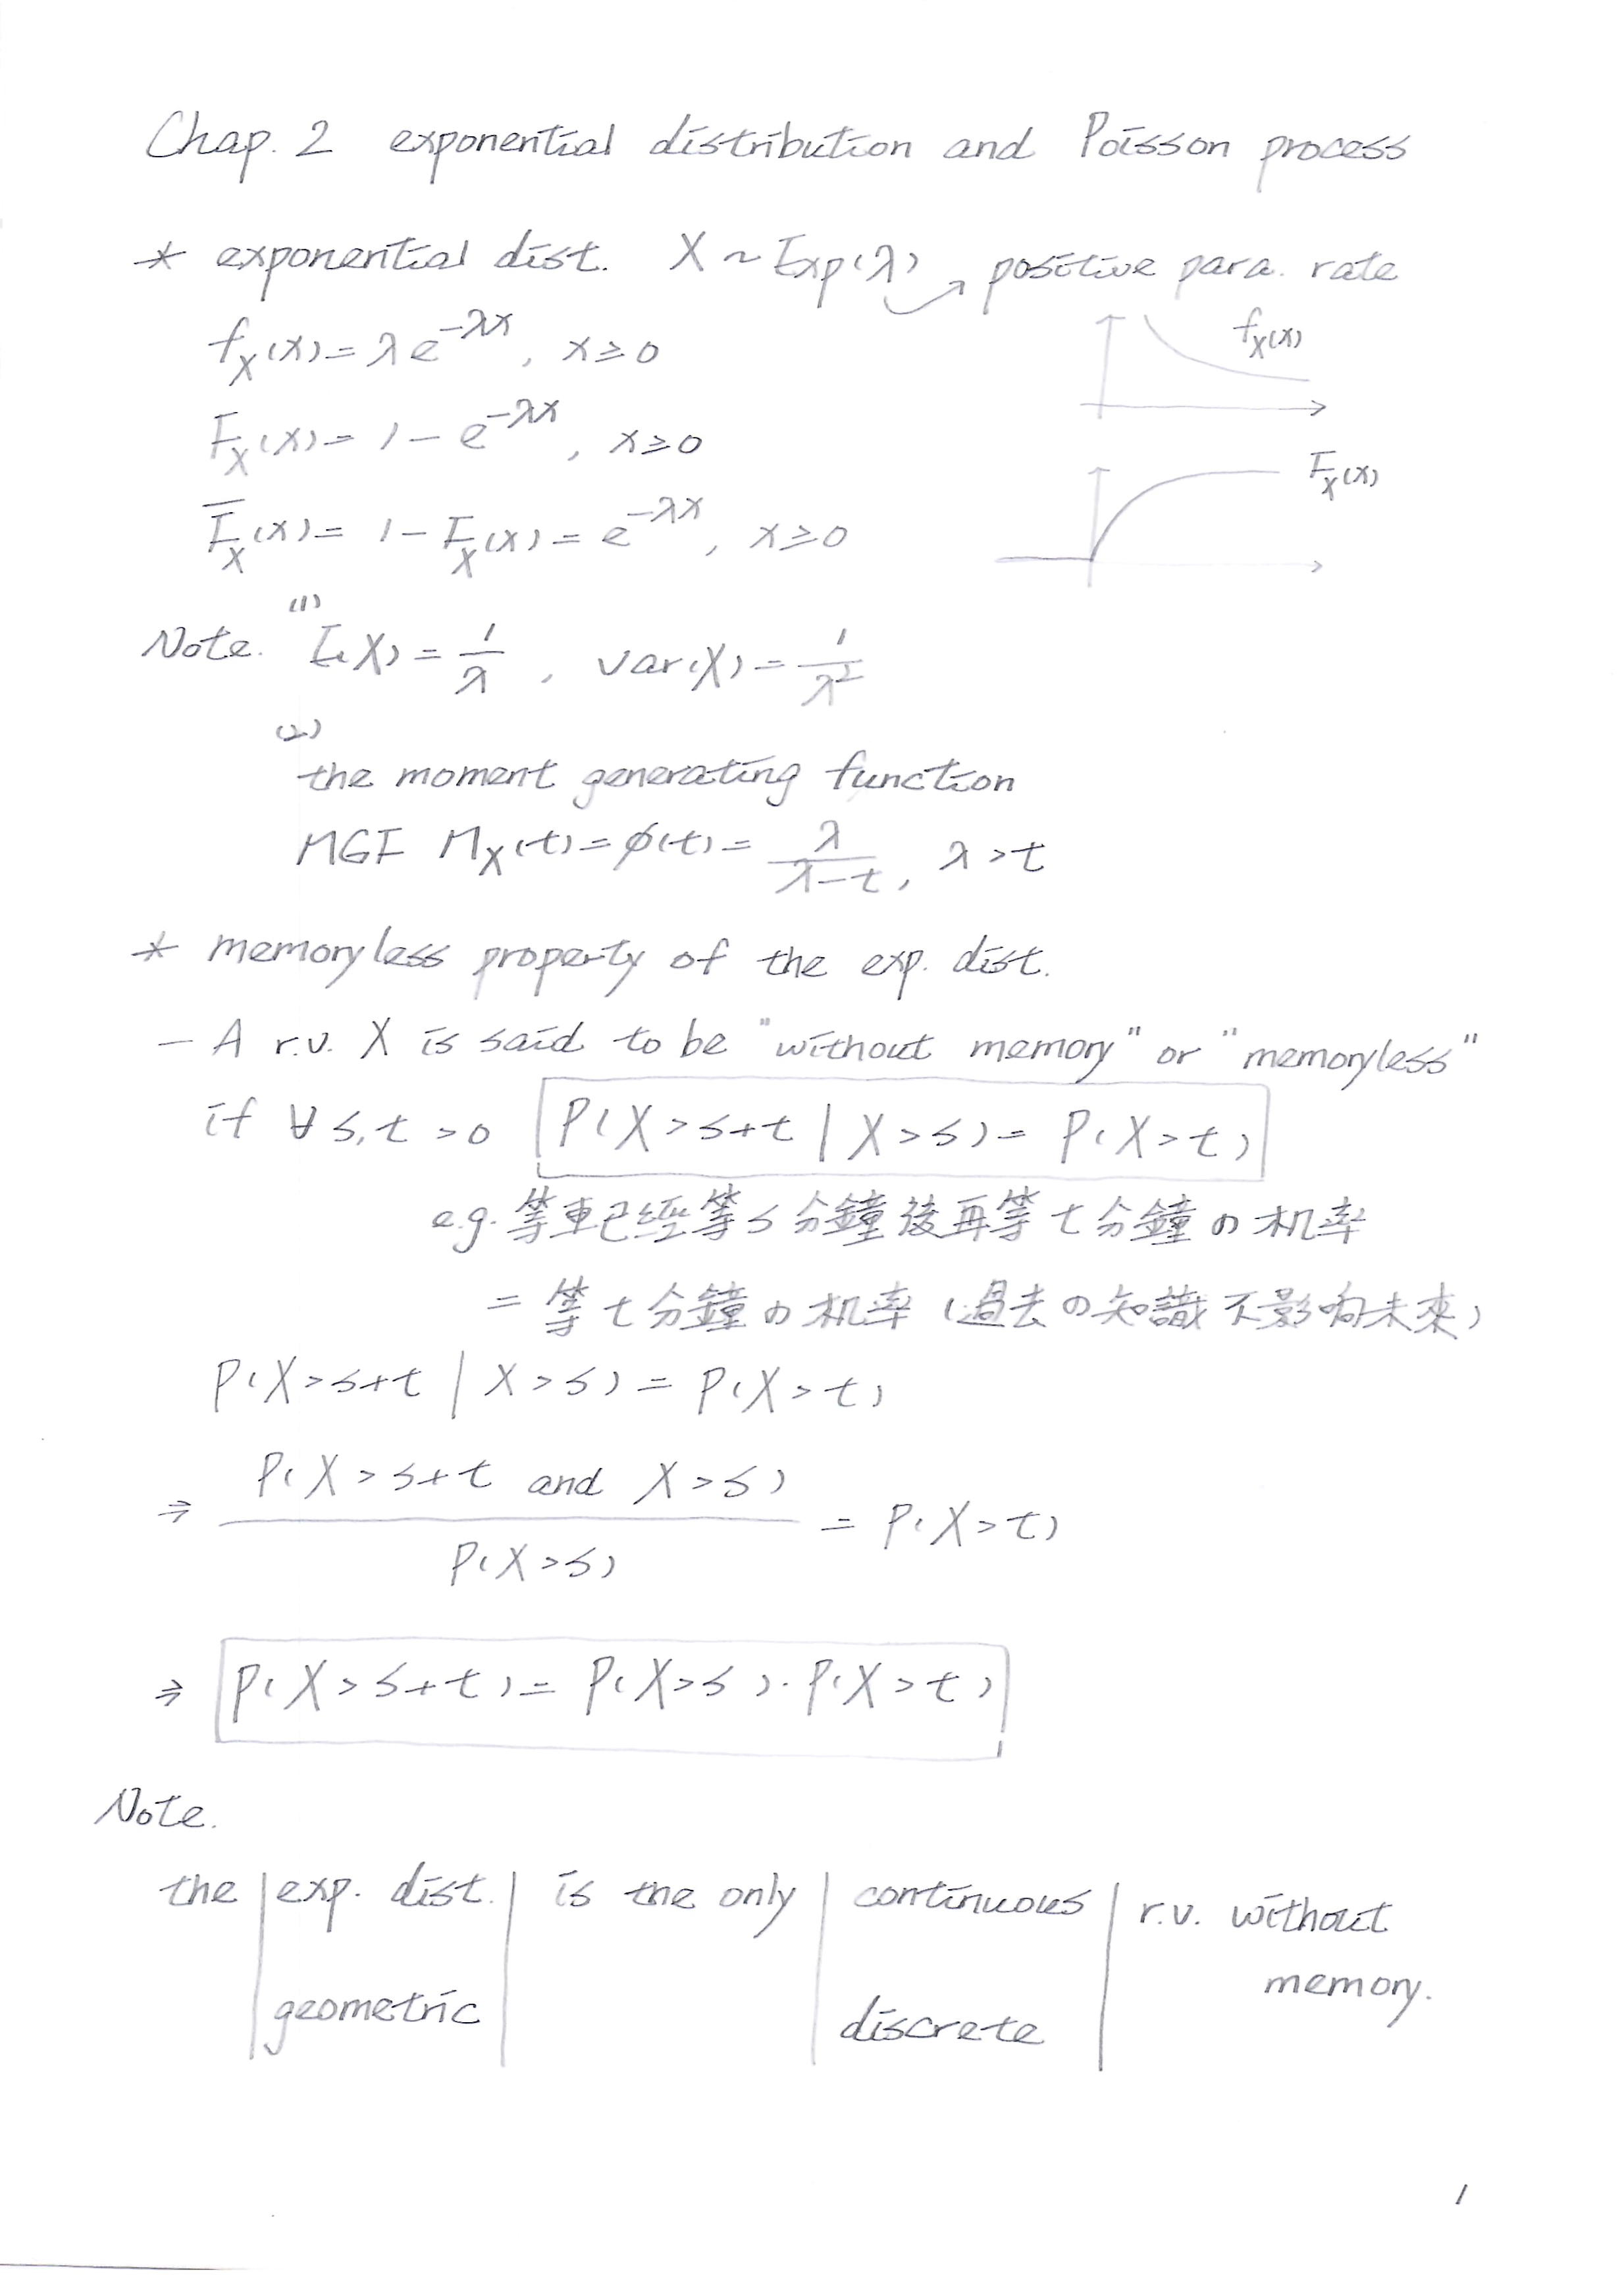 Chap. 2 exponential distribution and Poisson process
* exponential dist. X ~ Exp(λ) positive para. rate
f_X(x) = λe^{-λx}, x ≥ 0
f_X(x)
F_X(x) = 1 - e^{-λx}, x ≥ 0
F_X(x)
F̅_X(x) = 1 - F_X(x) = e^{-λx}, x ≥ 0
Note. (1) E(X) = 1/λ, var(X) = 1/λ²
(2)
the moment generating function
MGF M_X(t) = φ(t) = λ/(λ-t), λ > t
* memoryless property of the exp. dist.
- A r.v. X is said to be "without memory" or "memoryless"
if ∀ s, t > 0 P(X > s+t | X > s) = P(X > t)
e.g. 等車已經等 s 分鐘後再等 t 分鐘の机率
= 等 t 分鐘の机率 (過去の知識不影响未來)
P(X > s+t | X > s) = P(X > t)
⇒ P(X > s+t and X > s) / P(X > s) = P(X > t)
⇒ P(X > s+t) = P(X > s) · P(X > t)
Note.
the | exp. dist. | is the only | continuous | r.v. without
memory.
geometric
discrete
1